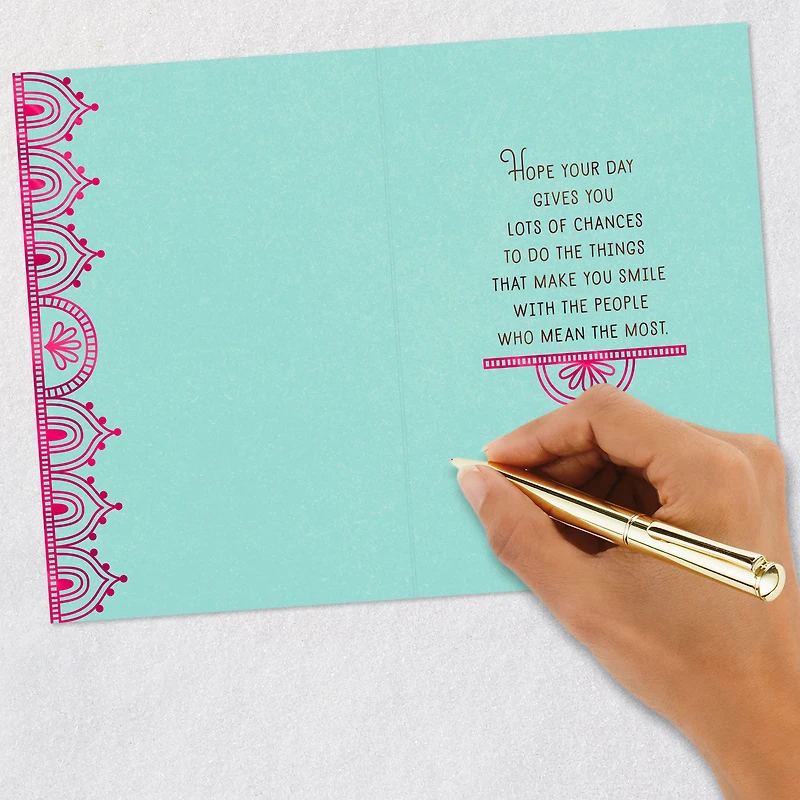 HOPE YOUR DAY
GIVES YOU
LOTS OF CHANCES
TO DO THE THINGS
THAT MAKE YOU SMILE
WITH THE PEOPLE
WHO MEAN THE MOST.